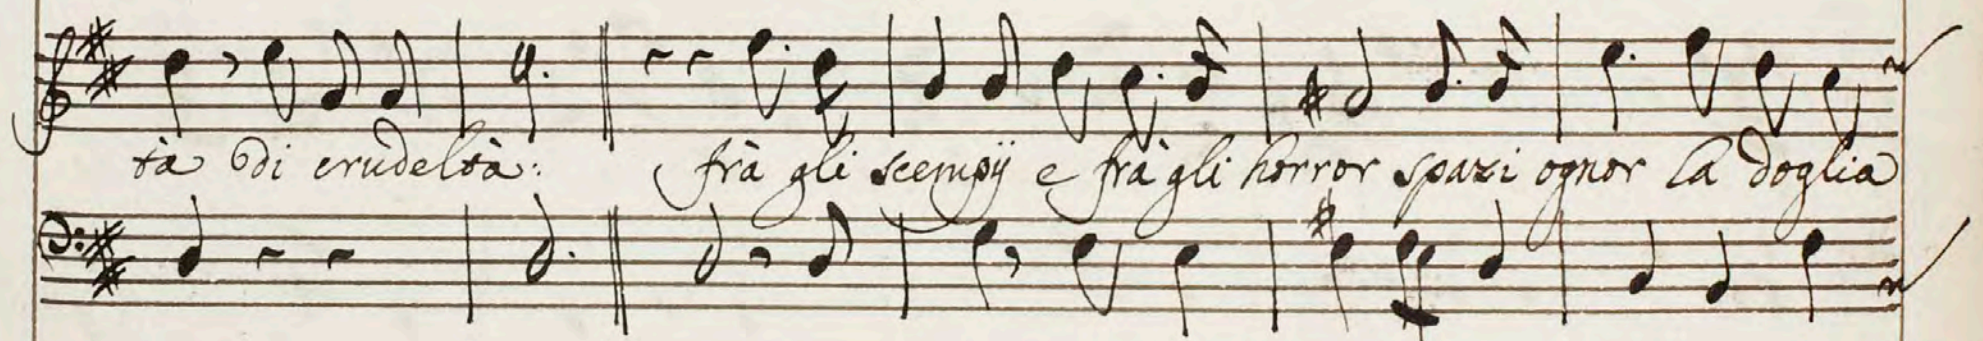 tà di crudeltà: frà gli scempÿ e frà gli horror spazi ognor la doglia